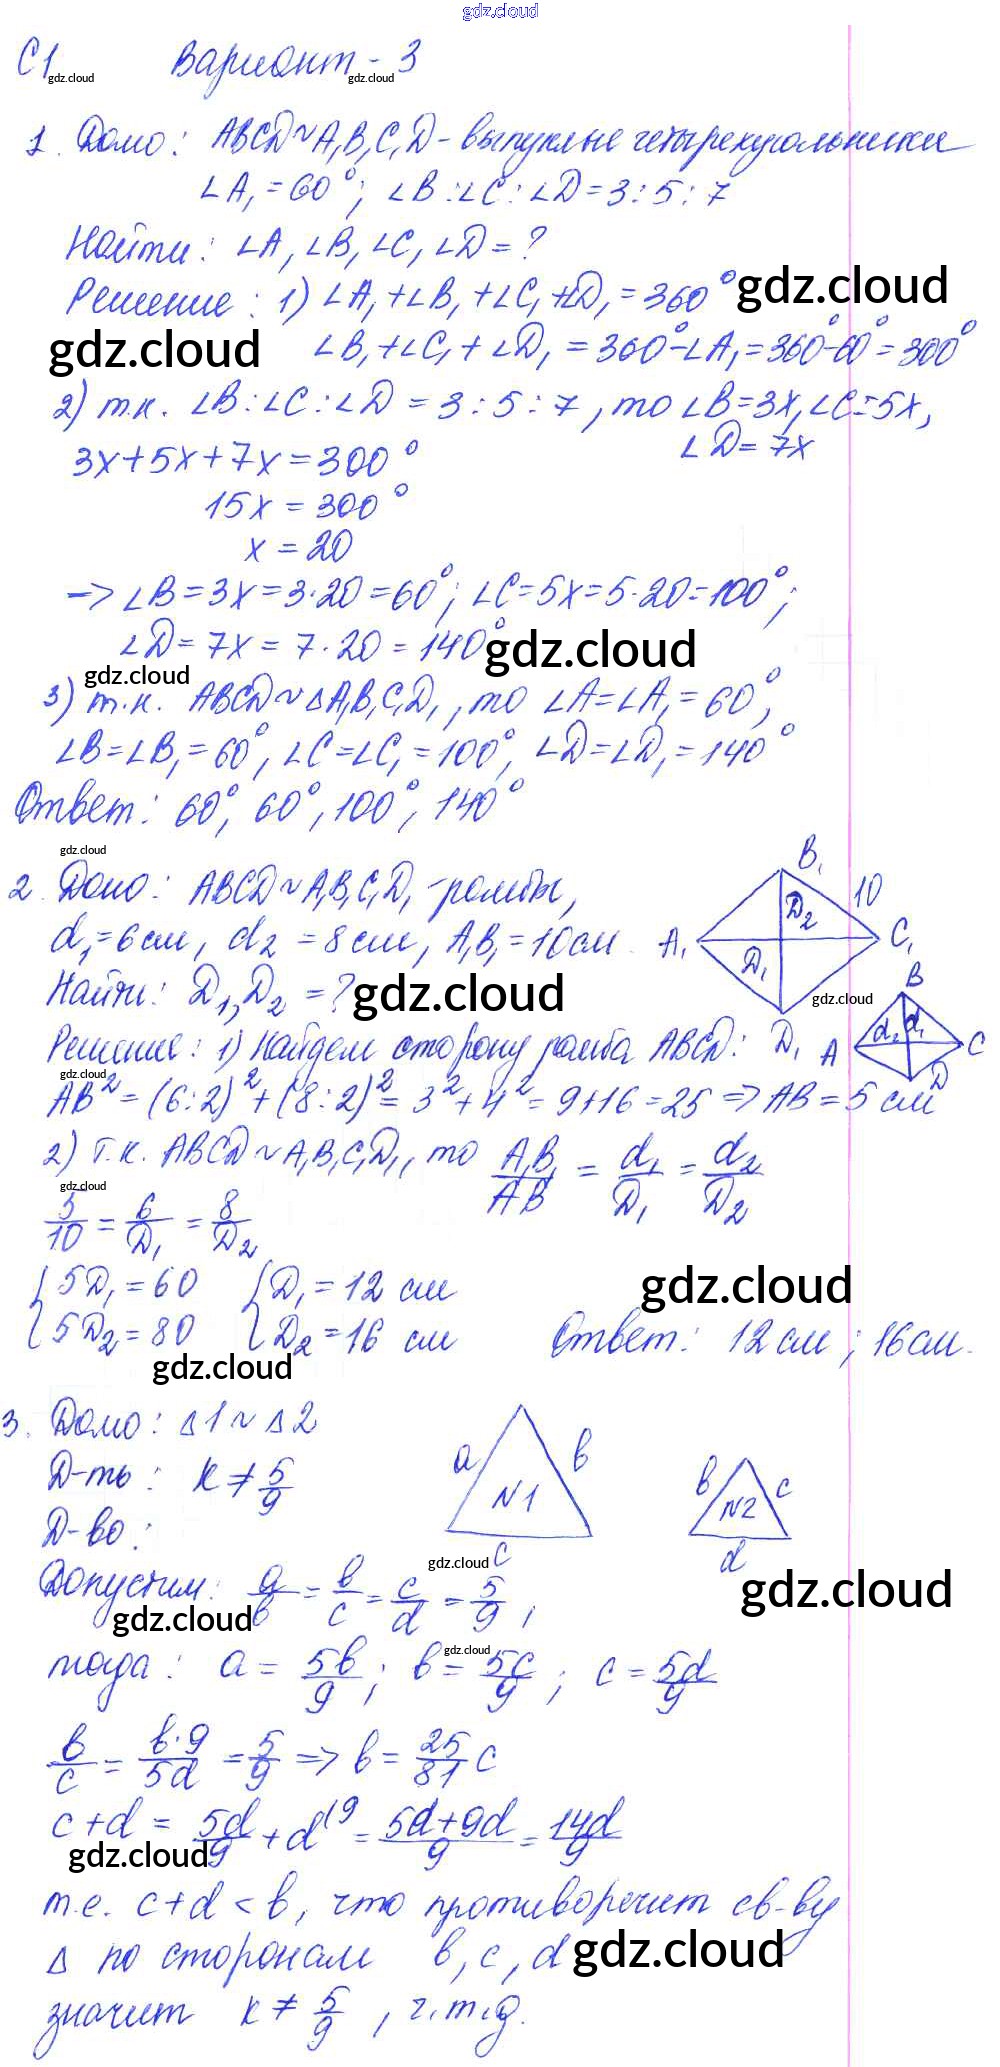 gdz.cloud
С1 Вариант - 3
gdz.cloud gdz.cloud
1. Дано: ABCD ~ A₁B₁C₁D - выпуклые четырехугольники
∠A₁ = 60°; ∠B : ∠C : ∠D = 3 : 5 : 7
Найти: ∠A, ∠B, ∠C, ∠D = ?
Решение: 1) ∠A₁ + ∠B₁ + ∠C₁ + ∠D₁ = 360° gdz.cloud
gdz.cloud ∠B₁ + ∠C₁ + ∠D₁ = 360° - ∠A₁ = 360° - 60° = 300°
2) т.к. ∠B : ∠C : ∠D = 3 : 5 : 7, то ∠B = 3x, ∠C = 5x,
∠D = 7x
3x + 5x + 7x = 300°
15x = 300°
x = 20
→ ∠B = 3x = 3·20 = 60°; ∠C = 5x = 5·20 = 100°;
∠D = 7x = 7·20 = 140° gdz.cloud
gdz.cloud
3) т.к. ABCD ~ ΔA₁B₁C₁D₁, то ∠A = ∠A₁ = 60°,
∠B = ∠B₁ = 60°, ∠C = ∠C₁ = 100°, ∠D = ∠D₁ = 140°
Ответ: 60°, 60°, 100°, 140°
gdz.cloud
2 Дано: ABCD ~ A₁B₁C₁D₁ - ромбы,
d₁ = 6 см, d₂ = 8 см, A₁B₁ = 10 см.
Найти: D₁, D₂ = ? gdz.cloud
B₁ 10 D₂ A₁ C₁ D₁ D₁
gdz.cloud
B d₂ d₁ A C D
Решение: 1) Найдем сторону ромба ABCD:
gdz.cloud
AB² = (6:2)² + (8:2)² = 3² + 4² = 9+16 = 25 => AB = 5 см
2) Т.к. ABCD ~ A₁B₁C₁D₁, то A₁B₁/AB = d₁/D₁ = d₂/D₂
gdz.cloud
5/10 = 6/D₁ = 8/D₂
{ 5D₁ = 60 { D₁ = 12 см gdz.cloud
{ 5D₂ = 80 { D₂ = 16 см Ответ: 12 см; 16 см.
gdz.cloud
3. Дано: Δ1 ~ Δ2
a в N1 c
в c N2 d
Д-ть: k ≠ 5/9
Д-во:
gdz.cloud
Допустим: a/в = в/c = c/d = 5/9; gdz.cloud
gdz.cloud
тогда: a = 5в/9; в = 5c/9; c = 5d/9
gdz.cloud
в/c = в·9/5d = 5/9 => в = 25/81 c
c + d = 5d/9 + d⁽⁹ = 5d+9d/9 = 14d/9
gdz.cloud
т.е. c + d < в, что противоречит св-ву
Δ по сторонам в, c, d gdz.cloud
значит k ≠ 5/9, ч.т.д.